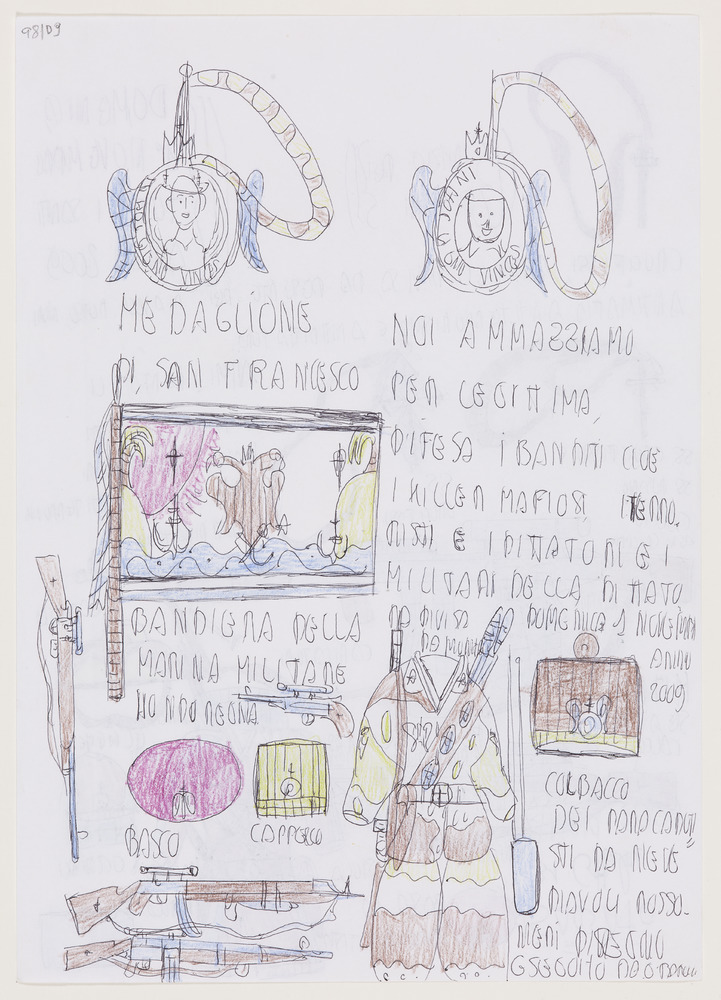 98/09
IN HOC
SIGNI VINCES
IN HOC
SIGNI VINCES
MEDAGLIONE
DI, SAN FRANCESCO
NOI AMMAZZIAMO
PER LEGITTIMA,
DIFESA I BANDITI CIOE
I KILLER MAFIOSI I TERRO.
RISTI E I DITTATORI E I
MILITARI DELLA DITTATO
RA DIVISA DOMENICA 1 NOVEMBRE
ANNO
2009
BANDIERA DELLA
MARINA MILITARE
HONDOREGNA
BASCO
CAPPELLO
COLBACCO
DEI PARACADUTI
STI DA NEVE
DIAVOLI ROSSO.
NERI DISEGNO
ESEGUITO